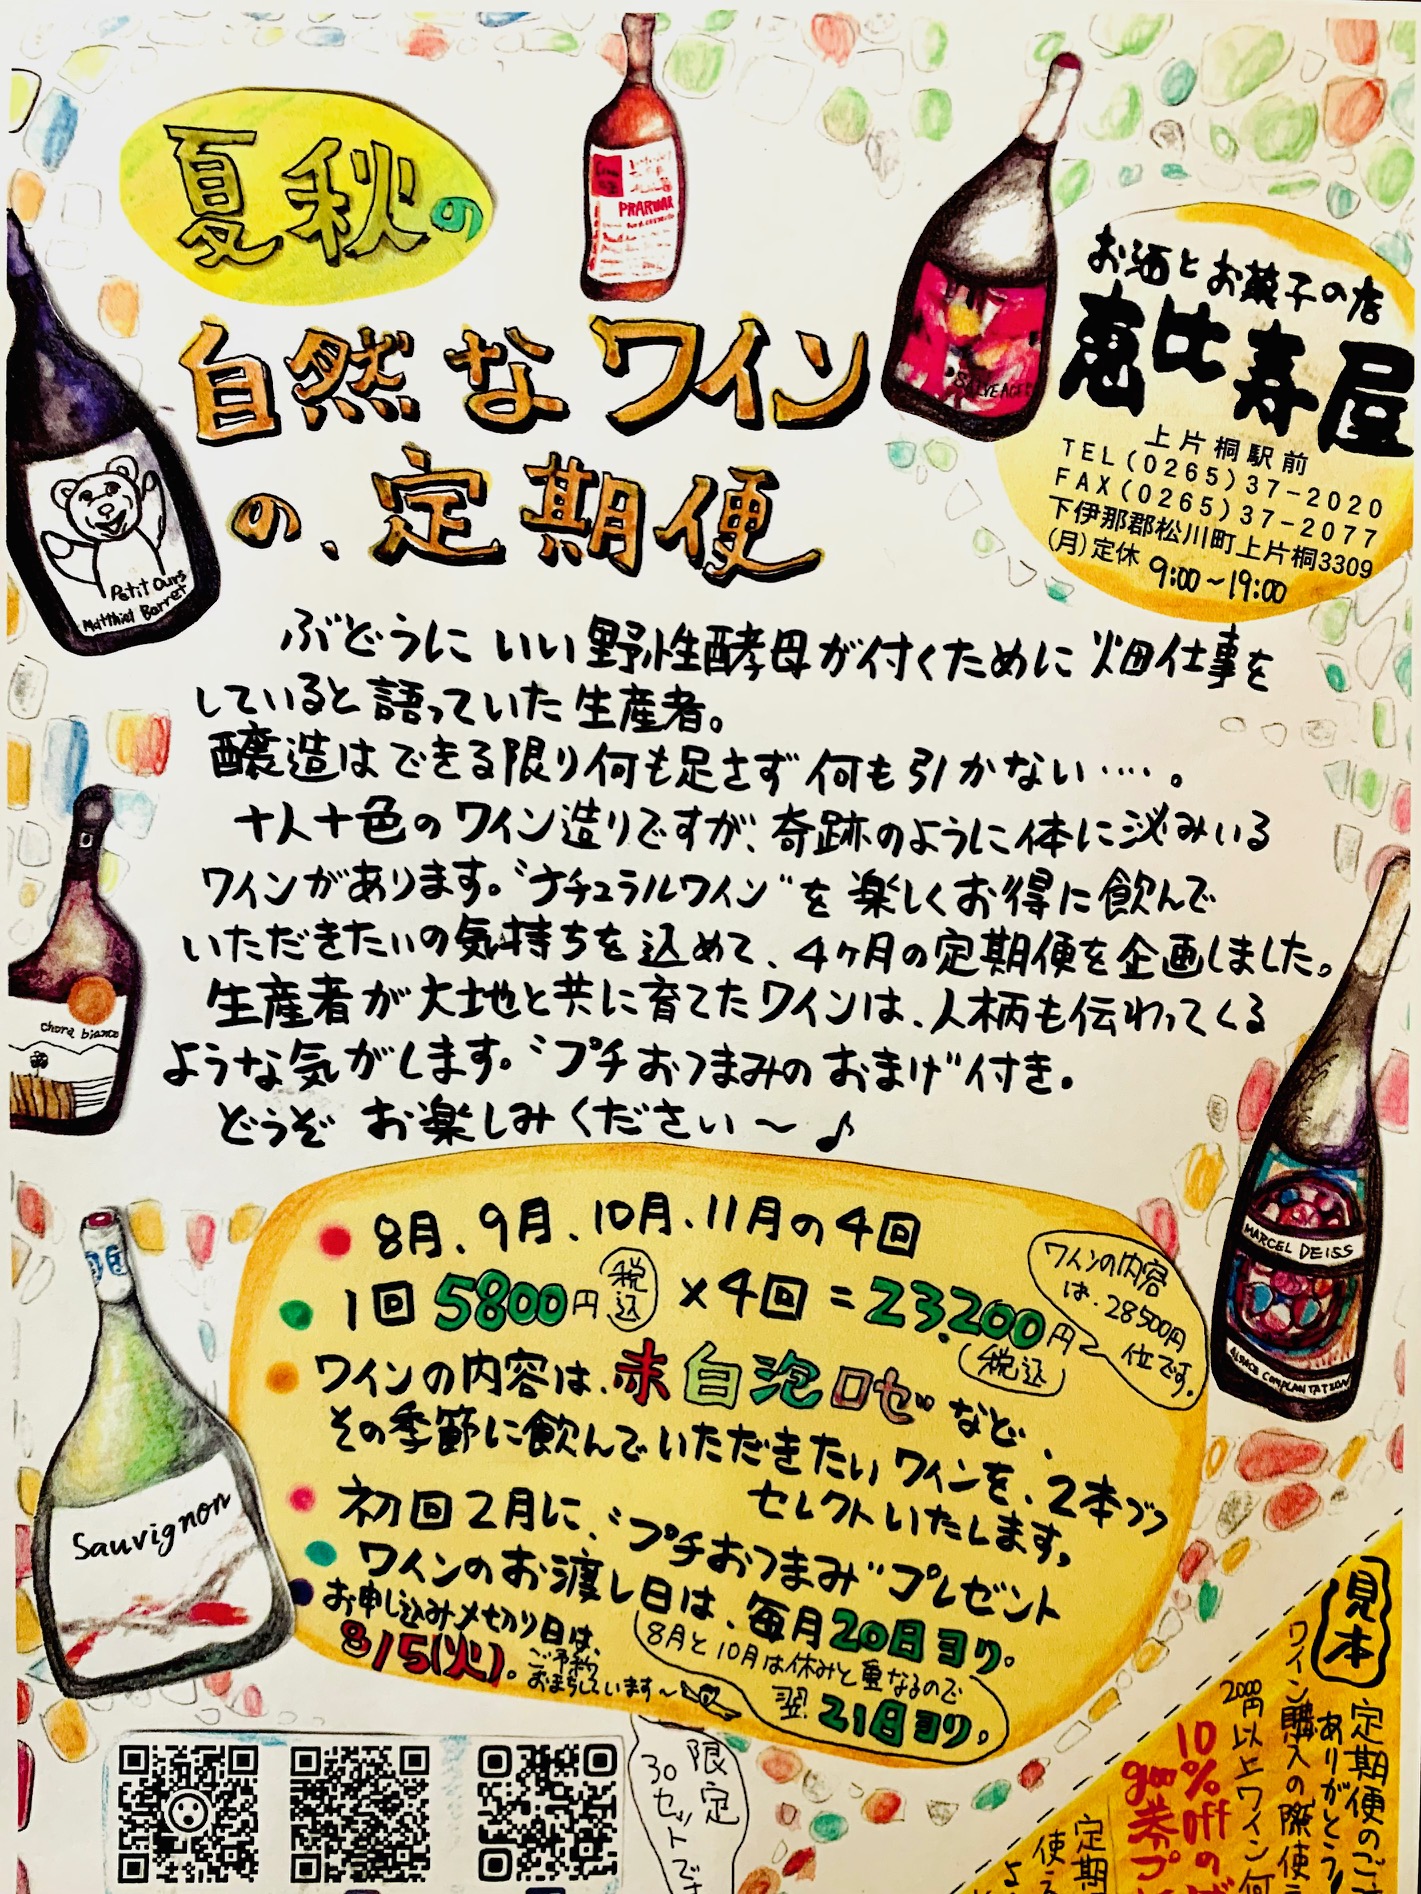 夏秋の
自然なワイン
の、定期便
PRARUAR
SALVEAGE
お酒とお菓子の店
恵比寿屋
上片桐駅前
TEL(0265)37-2020
FAX(0265)37-2077
下伊那郡松川町上片桐3309
(月)定休 9:00~19:00
Petit Ours
Matthiel Barret
ぶどうに いい野性酵母が付くために 畑仕事を
していると語っていた生産者。
醸造はできる限り何も足さず何も引かない‥‥。
十人十色のワイン造りですが、奇跡のように体に泌みいる
ワインがあります。"ナチュラルワイン"を楽しくお得に飲んで
いただきたいの気持ちを込めて、4ヶ月の定期便を企画しました。
生産者が大地と共に育てたワインは、人柄も伝わってくる
ような気がします。"プチおつまみのおまけ"付き。
どうぞ お楽しみください~♪
chora bianco
MARCEL DEISS
ALSACE COMPLANTATION
Sauvignon
8月、9月、10月、11月の4回
1回 5800円 税込 ×4回 = 23.200円 (税込)
ワインの内容
は、28500円
位です。
ワインの内容は、赤 白 泡 ロゼ など、
その季節に飲んでいただきたいワインを、2本づつ
セレクトいたします。
初回2月に、"プチおつまみ"プレゼント
ワインのお渡し日は、毎月20日ヨリ。
8月と10月は休みと重なるので
翌21日ヨリ。
お申し込み〆切り日は、
8/5(火)。
ご予約
おまちしています~
限定
30セットでさ
見本
定期便のご
ありがとう!
ワイン購入の際使え
2000円以上ワイン何
10%offの
goo券プレ
定期
使える